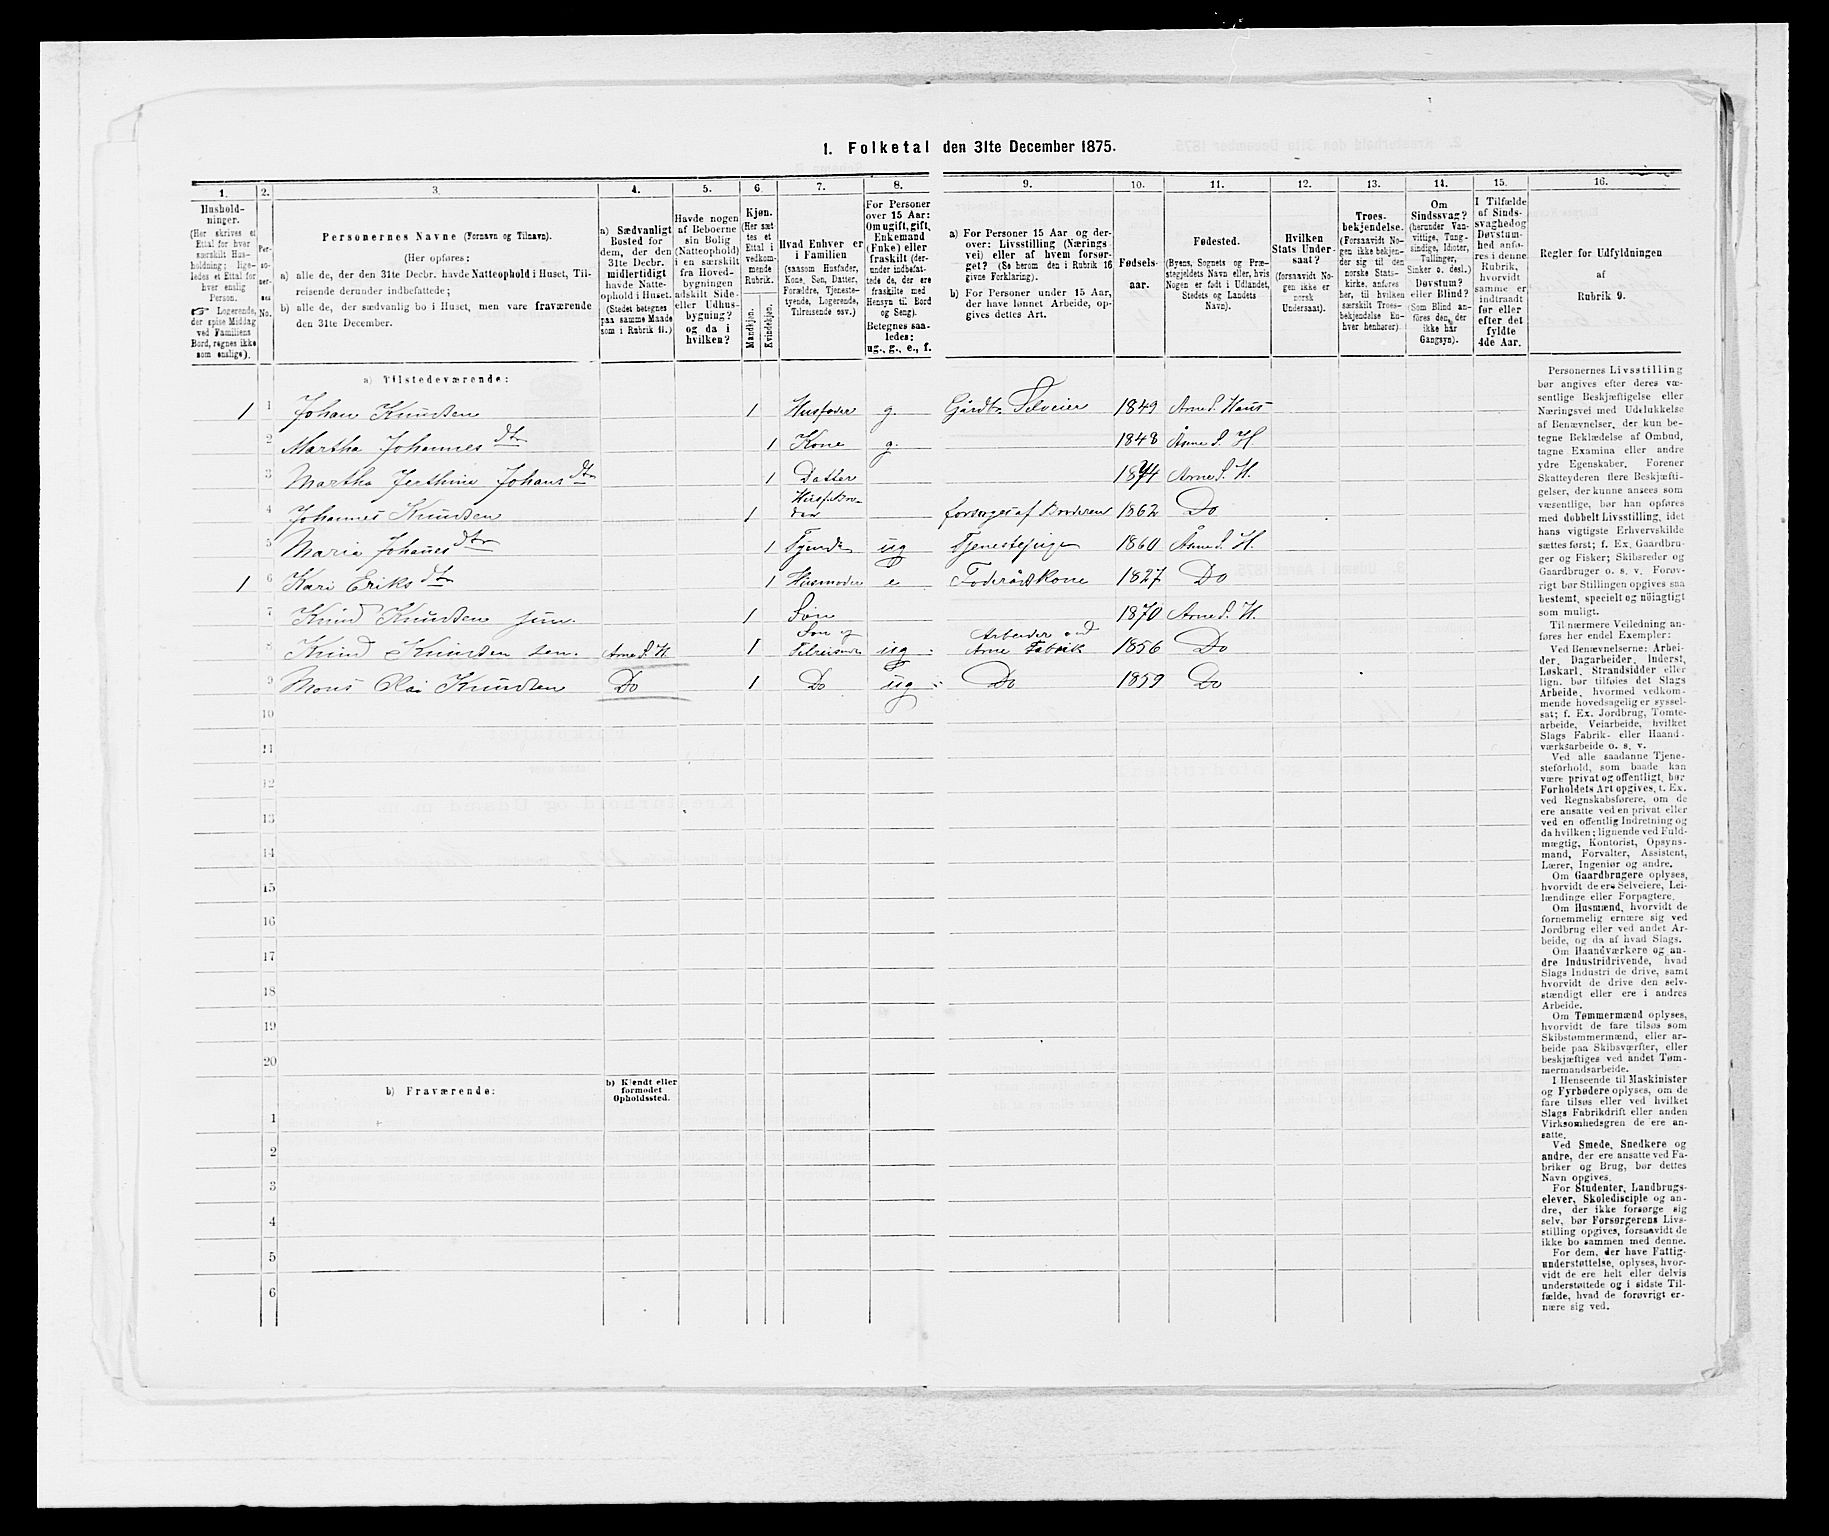 1. Folketal den 31te December 1875.
1. 2. 3. 4. 5. 6. 7. 8. 9. 10. 11. 12. 13. 14. 15. 16.
Hushold-
ninger.
(Her skrives et
Ettal for hver
særskilt Hus-
holdning; lige-
ledes et Ettal for
hver enslig
Person.
☞ Logerende,
der spise Middag
ved Familiens
Bord, regnes ikke
som enslige).
Per-
so-
ner-
nes
No.
Personernes Navne (Fornavn og Tilnavn).
(Her opføres:
a) alle de, der den 31te Decbr. havde Natteophold i Huset, Til-
reisende derunder indbefattede;
b) alle de, der sædvanlig bo i Huset, men vare fraværende
den 31te December.
a) Sædvanligt
Bosted for
dem, der den
31te Decbr.
midlertidigt
havde Natte-
ophold i Huset.
(Stedet betegnes
paa samme Maade
som i Rubrik 11.)
Havde nogen
af Beboerne
sin Bolig
(Natteophold)
i en særskilt
fra Hoved-
bygningen
adskilt Side-
eller Udhus-
bygning?
og da i
hvilken?
Kjøn.
(Her sæt-
tes et
Ettal i
vedkom-
mende
Rubrik.
Mandkjøn.
Kvindekjøn.
Hvad Enhver er
i Familien
(saasom Husfader,
Kone, Søn, Datter,
Forældre, Tjeneste-
tyende, Logerende,
Tilreisende osv.)
For Personer
over 15 Aar:
Om ugift, gift,
Enkemand
(Enke) eller
fraskilt (der-
under indbefat-
tede de, der ere
fraskilte med
Hensyn til Bord
og Seng).
Betegnes saa-
ledes:
ug., g., e., f.
a) For Personer 15 Aar og der-
over: Livsstilling (Nærings-
vei) eller af hvem forsør-
get? (Se herom den i Rubrik 16
givne Forklaring).
b) For Personer under 15 Aar,
der have lønnet Arbeide, op-
gives dettes Art.
Fødsels-
aar.
Fødested.
(Byens, Sognets og Præ-
stegjeldets Navn eller, hvis
Nogen er født i Udlandet,
Stedets og Landets
Navn).
Hvilken
Stats Under-
saat?
(forsaavidt No-
gen ikke er
norsk
Undersaat).
Troes-
bekjendelse.
(Forsaavidt No-
gen ikke bekjen-
der sig til den
norske Stats-
kirke, anføres
her, til hvilken
særskilt Troes-
bekjendelse En-
hver henhører).
Om
Sindssvag?
(herunder Van-
vittige, Tung-
sindige, Idioter,
Tullinger,
Sinker o. desl.)
Døvstum?
eller Blind?
(Som Blind an-
føres den, der
ikke har
Gangsyn).
I Tilfælde
af Sinds-
svaghed og
Døvstum-
hed anfø-
res i denne
Rubrik,
hvorvidt
samme er
indtraadt
før eller
efter det
fyldte
4de Aar.
Regler for Udfyldningen
af
Rubrik 9.
a) Tilstedeværende:
1 1 Johan Knudsen 1 Husfader g. Gårdbr. Selveier 1849 Arne S. Haus
2 Martha Johannes dtr 1 Kone g. 1848 Årne S. H
3 Martha Johans dtr 1 Datter 1874 Arne S. H.
4 Johannes Knudsen 1 Husf. Bro-
der forsørges af Broderen 1862 Do
5 Maria Johannes dtr 1 Tyende ug Tjenestepige 1860 Årne S. H.
1 6 Kari Eriks dtr 1 Husmoder e Føderådskone 1827 Do
7 Knud Knudsen jun. 1 Søn 1870 Arne S. H.
8 Knud Knudsen sen. Arne S. H 1 Søn og
Tilreisende ug. Arbeider ved
Arne Fabrik 1856 Do
9 Mons Olai Knudsen Do 1 Do ug. Do 1859 Do
10
11
12
13
14
15
16
17
18
19
20
b) Fraværende:
b) Kjendt eller
formodet
Opholdssted.
1
2
3
4
5
6
Personernes Livsstilling
bør angives efter deres væ-
sentlige Beskjæftigelse eller
Næringsvei med Udelukkelse
af Benævnelser, der kun be-
tegne Beklædelse af Ombud,
tagne Examina eller andre
ydre Egenskaber. Forener
Skatteyderen flere Beskjæfti-
gelser, der kunne ansees som
væsentlige, bør han opføres
med dobbelt Livsstilling, idet
hans vigtigste Erhvervskilde
sættes først; f. Ex. Gaardbru-
ger og Fisker; Skibsreder og
Gaardbruger o. s. v. Forøv-
rigt bør Stillingen opgives saa
bestemt, specielt og nöiagtigt
som muligt.
Til nærmere Veiledning an-
føres her endel Exempler:
Ved Benævnelserne: Arbei-
der, Dagarbeider, Inderst,
Løskarl, Strandsidder eller
lign. bør tilføies det Slags
Arbeide, hvormed vedkom-
mende hovedsagelig er syssel-
sat; f. Ex. Jordbrug, Tomte-
arbeide, Veiarbeide, hvilket
Slags Fabrik- eller Haand-
værksarbeide o. s. v.
Ved alle saadanne Tjene-
steforhold, som baade kan
være privat og offentligt, bør
Forholdets Art opgives, t. Ex.
ved Regnskabsførere, om de
ere ansatte ved en privat eller
ved en offentlig Indretning og
da hvilken; lignende ved Fuld-
mægtig, Kontorist, Opsyns-
mand, Forvalter, Assistent,
Lærer, Ingeniør og andre.
Om Gaardbrugere oplyses,
hvorvidt de ere Selveiere, Lei-
lændinge eller Forpagtere.
Om Husmænd, hvorvidt de
fornemmelig ernære sig ved
Jordbrug eller ved andet Ar-
beide, og da af hvad Slags.
Om Haandværkere og an-
dre Industridrivende, hvad
Slags Industri de drive, samt
hvorvidt de drive den selv-
stændigt eller ere i andres
Arbeide.
Om Tømmermænd oplyses,
hvorvidt de fare tilsøs som
Skibstømmermænd, eller ar-
beide paa Skibsværfter, eller
beskjæftiges ved andet Tøm-
mermandsarbeide.
I Henseende til Maskinister
og Fyrbødere oplyses, om de
fare tilsøs eller ved hvilket
Slags Fabrikdrift eller anden
Virksomhedsgren de ere an-
satte.
Ved Smede, Snedkere og
andre, der ere ansatte ved Fa-
briker og Brug, bør dettes
Navn opgives.
For Studenter, Landbrugs-
elever, Skoledisciple og an-
dre, der ikke forsørge sig
selv, bør Forsørgerens Livs-
stilling opgives, forsaavidt de
ikke bo sammen med denne.
For dem, der have Fattig-
understøttelse, oplyses, hvor-
vidt de ere helt eller delvis
understøttede og i sidste Til-
fælde, hvad de forøvrigt er-
nære sig ved.